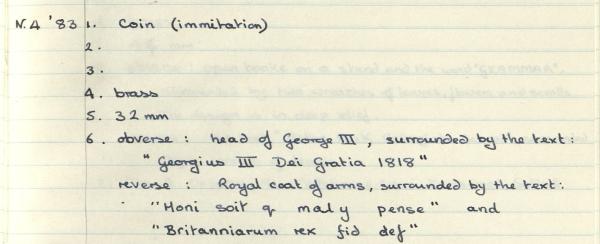 N.4 '83 1. Coin (immitation)
2.
3.
4. brass
5. 32 mm
6. obverse : head of George III, surrounded by the text:
"Georgius III Dei Gratia 1818"
reverse : Royal coat of arms, surrounded by the text:
"Honi soit q mal y pense" and
"Britanniarum rex fid def"